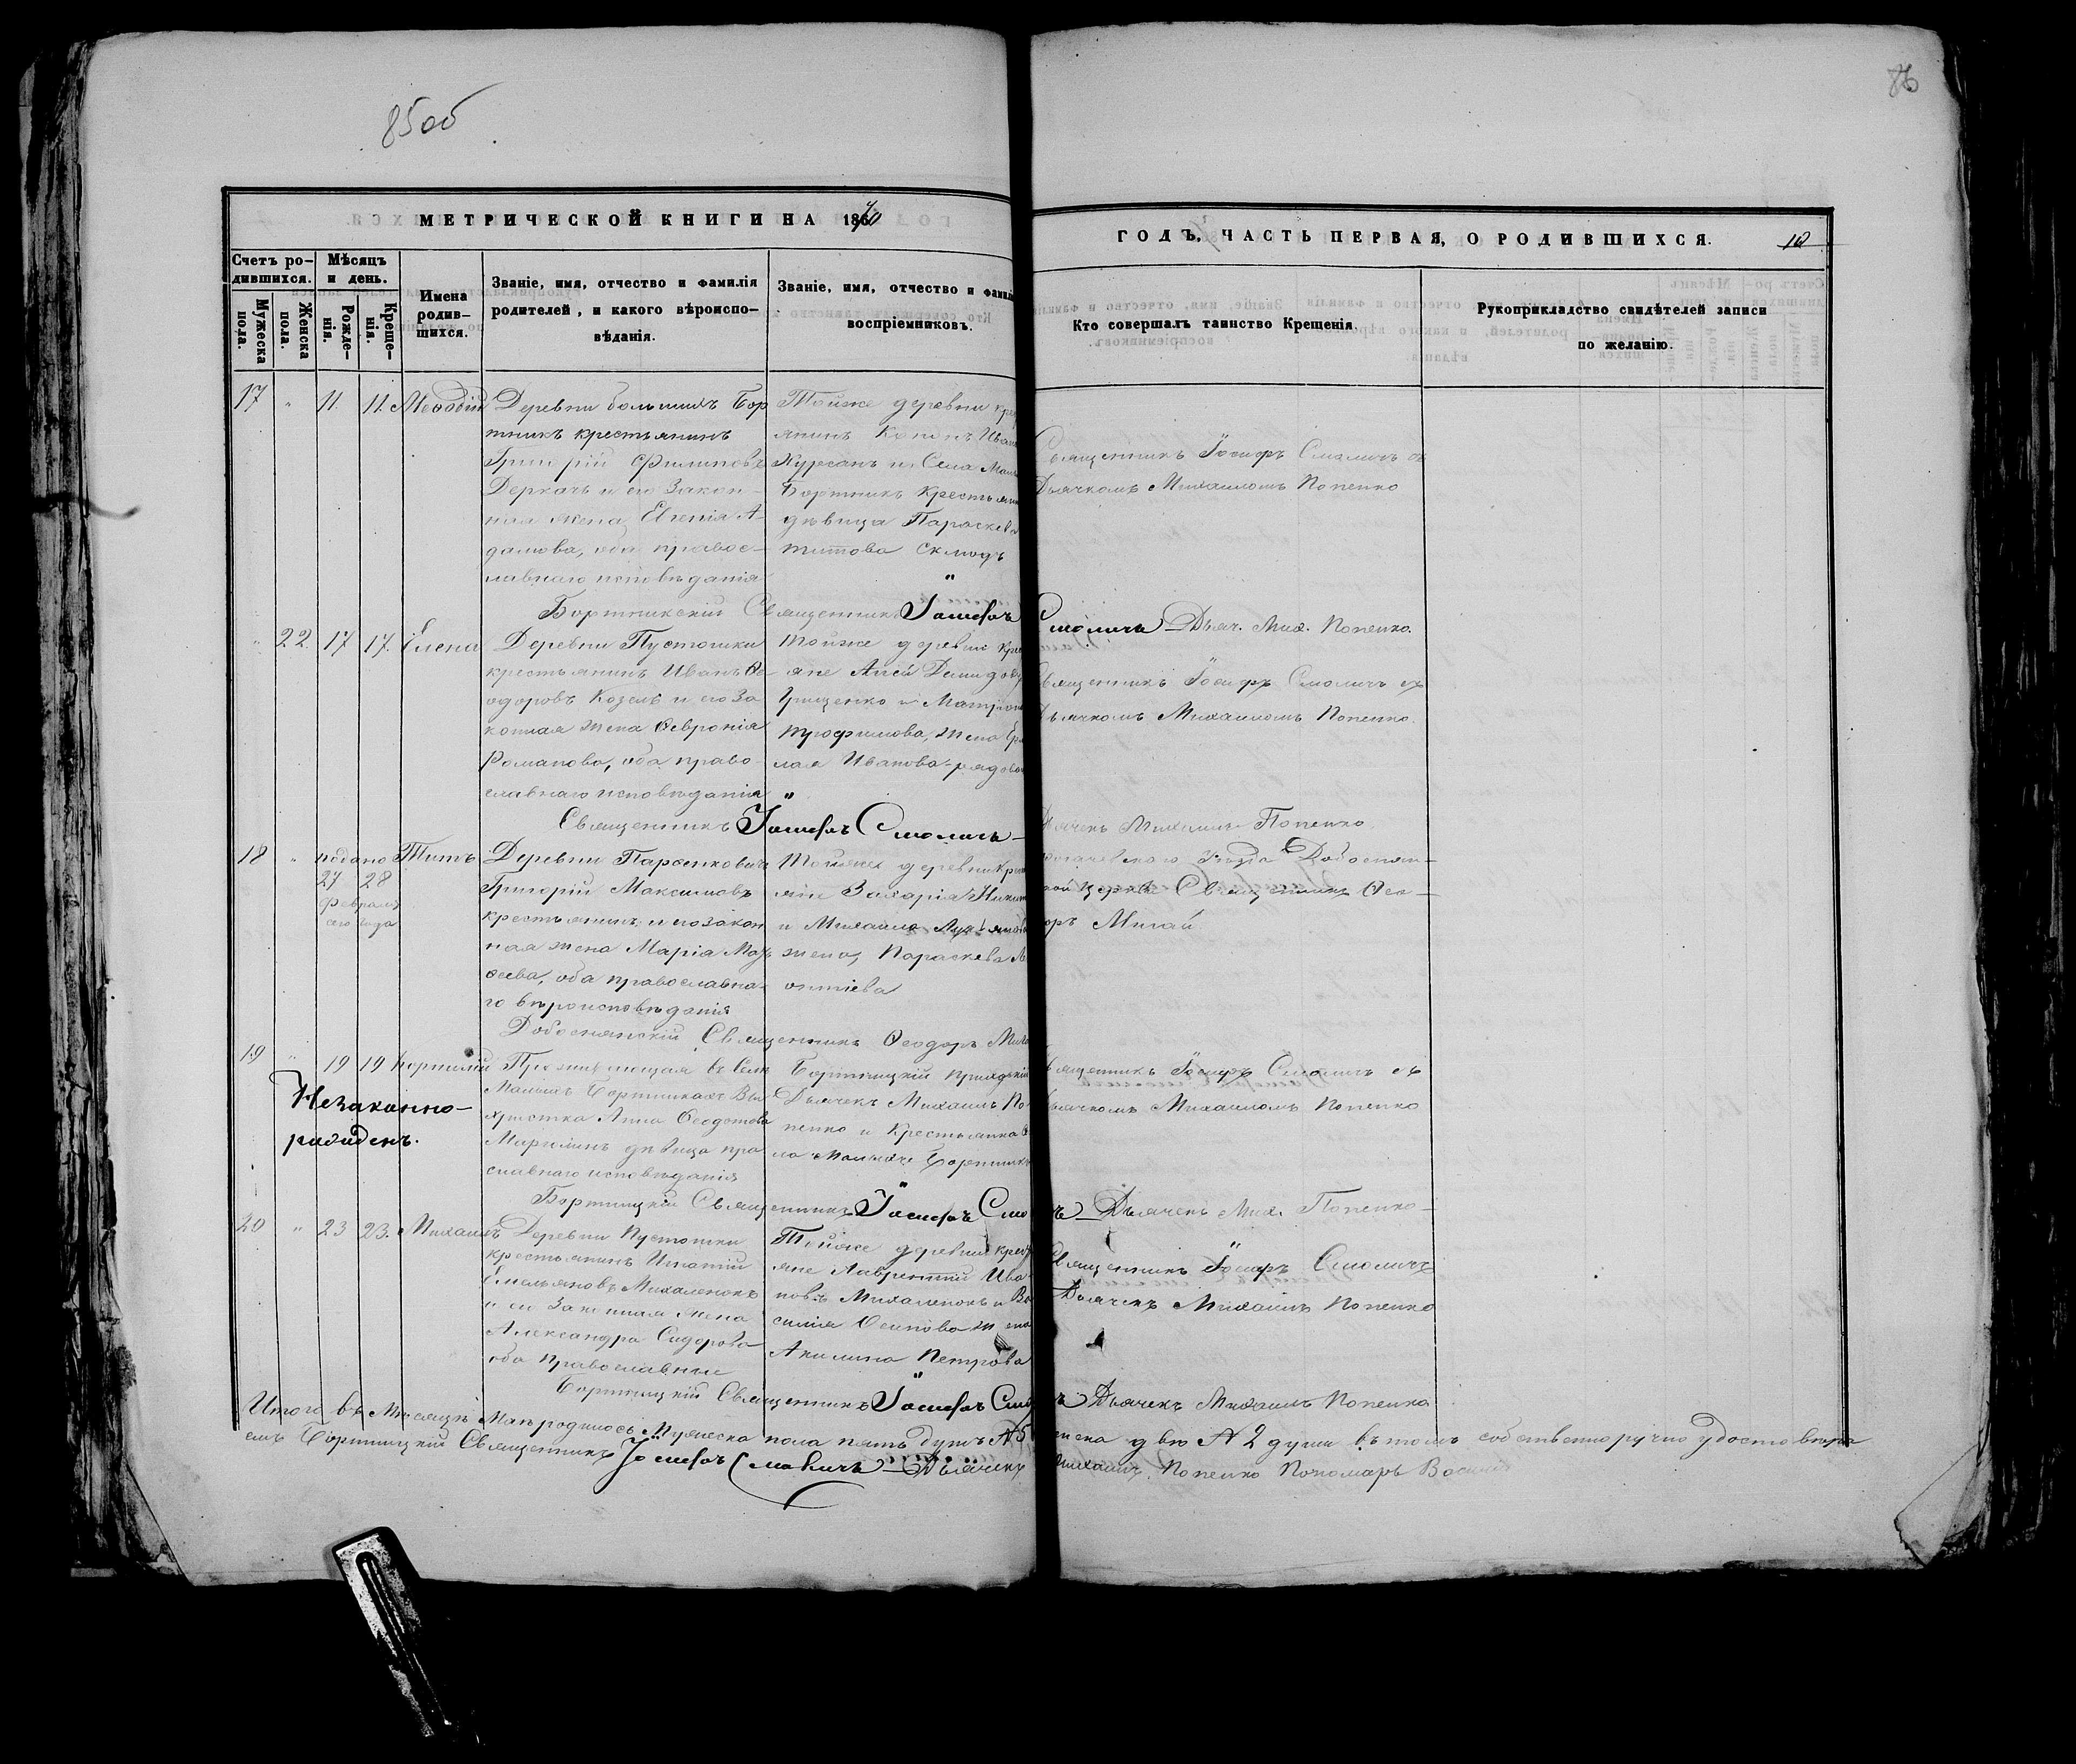 85 об
86
МЕТРИЧЕСКОЙ КНИГИ НА 1870
ГОДЪ, ЧАСТЬ ПЕРВАЯ, О РОДИВШИХСЯ.
10
Счетъ ро-
дившихся.
Мужеска
пола.
Женска
пола.
Мѣсяцъ
и день.
Рожде-
нія.
Креще-
нія.
Имена
родив-
шихся.
Званіе, имя, отчество и фамилія
родителей, и какого вѣроиспо-
вѣданія.
Званіе, имя, отчество и фамилія
воспріемниковъ.
Кто совершалъ таинство Крещенія.
Рукоприкладство свидѣтелей записи
по желанію.
17 " 11. 11. Меѳодій
Деревни большихъ Бор
тникъ крестьянинъ
Григорій Филиповъ
Деркачъ и его закон-
ная жена Евгенія А-
дамова, оба правос-
лавнаго исповѣданія
Тойже деревни
янинъ
и Села
Бортникъ крестьян
дѣвица Параскева
Титова
Священникъ Іосифъ Смоличъ съ
Дьячкомъ Михаиломъ Попенко
Бортникскій Священникъ Іосифъ Смоличъ Дьяч. Мих. Попенко.
" 22. 17 17. Елена
Деревни Пустошки
крестьянинъ Иванъ Ѳе-
одоровъ Козелъ и его за
конная жена Ѳевронія
Романова, оба право-
славнаго исповѣданія
Тойже деревни кре
яне Демидовъ
Грищенко и Матрона
Трофимова, жена
Иванова рядова
Священникъ Іосифъ Смоличъ съ
Дьячкомъ Михаиломъ Попенко.
Священникъ Іосифъ Смоличъ Дьячекъ Михаилъ Попенко
18 " Титъ
27 28
февраля
сего года
Деревни
Григорій Максимовъ
крестьянинъ и его закон
ная жена Марія Мо
сеева, оба православна-
го вѣроисповѣданія
Тойже деревни кре
яне Захарія
и Михаила
жена, Параскева
онтіева
уѣзда
церкви Священникъ Ѳео-
оръ
Священникъ Ѳеодоръ
19 " 19 19 Корнилій
Незаконно-
рожденъ.
Проживающая въ Селѣ
Малыхъ Бортникахъ
христка Анна Ѳеодотова
дѣвица пра
славнаго исповѣданія
Бортницкій
Дьячекъ Михаилъ По
пенко и крестьянка
ла Малыхъ Бортникъ
Священникъ Іосифъ Смоличъ съ
Дьячкомъ Михаиломъ Попенко
Бортницкій Священникъ Іосифъ Смоличъ Дьячекъ Мих. Попенко
20 " 23 23. Михаилъ
Деревни Пустошки
крестьянинъ Игнатій
Емельяновъ Михаленокъ
и его законная жена
Александра Сидорова
оба православные
Тойже деревни крест
яне Лаврентій Ива-
новъ Михаленокъ и Ва
силія Осипова жена
Акилина Петрова
Священникъ Іосифъ Смоличъ
Дьячекъ Михаилъ Попенко
Бортницкій Священникъ Іосифъ Смоличъ Дьячекъ Михаилъ Попенко
Итого въ Мѣсяцѣ Маѣ родилось мужеска пола пять душъ № 5 женска двѣ № 2 души въ томъ собственноручно удостовѣря
емъ Бортницкій Священникъ Іосифъ Смоличъ Дьячекъ Михаилъ Попенко Пономарь